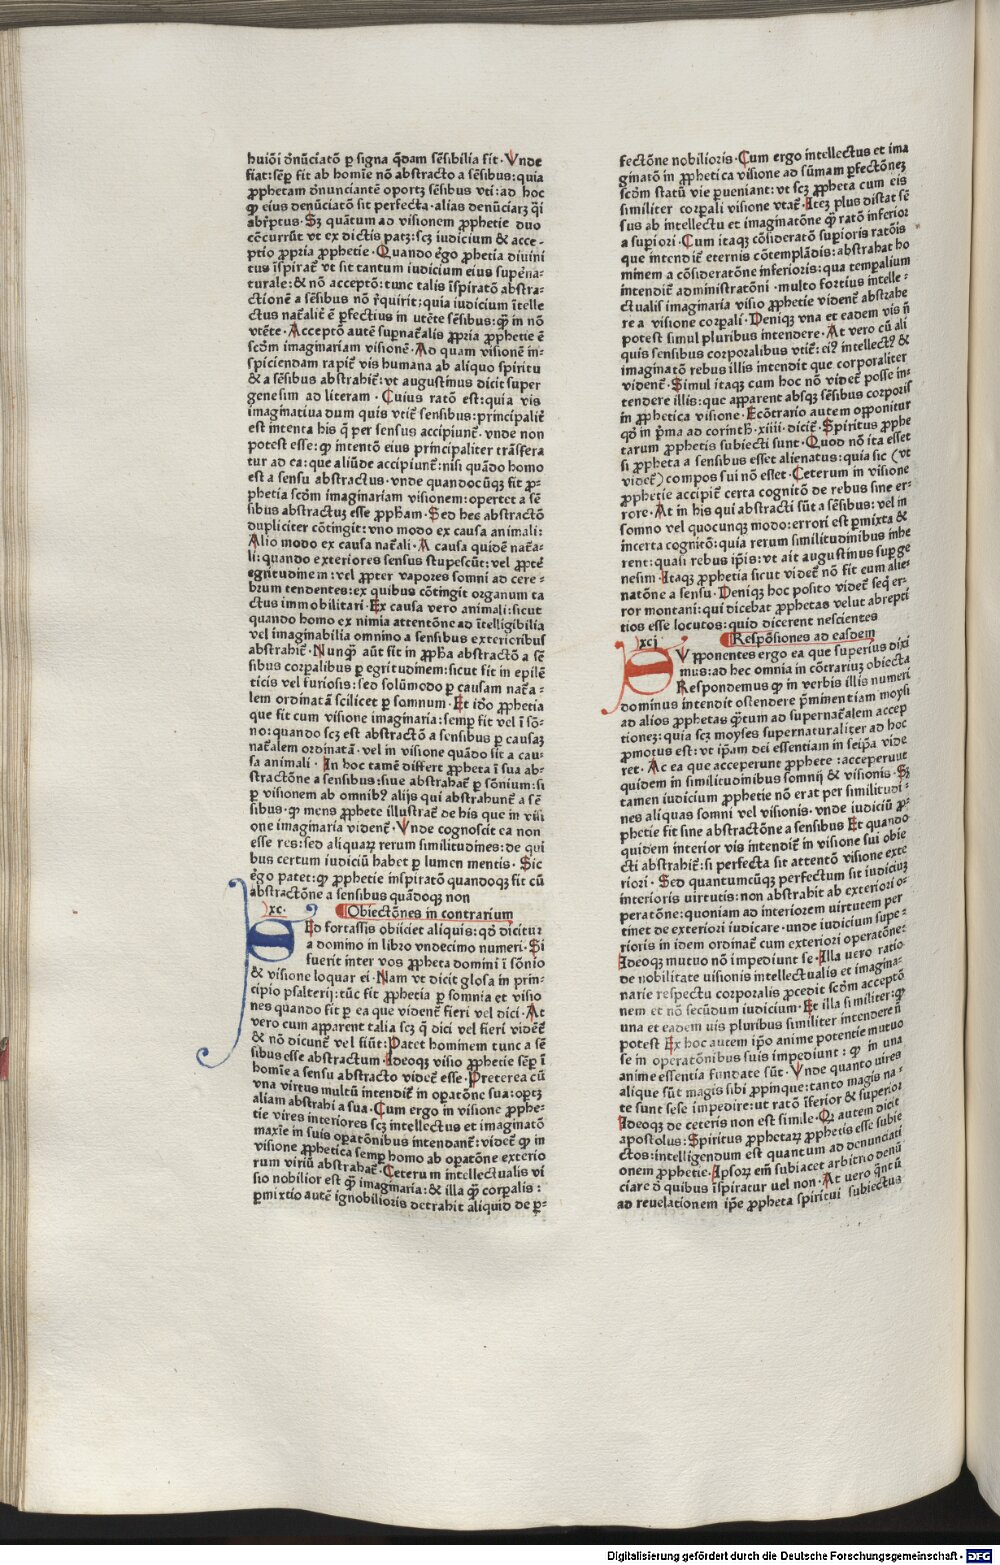 huiōi dꝰnūciatō ꝑ signa q̄dam sēsibilia fit. Vnde
fiat: sēꝑ fit ab homīe nō abstracto a sēsibus: quia
ꝓphetam dꝰnunciantē oportꝫ sēsibus vti: ad hoc
ꝙ eius denūciatō sit perfecta. alias denūciarꝫ q̄i
abr̄ptus. Sꝫ quātum ad visionem ꝓphetie duo
cōcurrūt vt ex dictis patꝫ: scꝫ iudicium & acce-
ptio ꝓpria ꝓphetie. Quando ergo ꝓphetia diuini
tus īspirat᷑ vt sit tantum iudicium eius suꝑna-
turale: & nō acceptō: tunc talis īspiratō abstra-
ctionē a sēsibus nō rꝰquirit: quia iudicium ītelle
ctus nat᷑alit᷑ ē ꝑfectius in vtēte sēsibus: ꝙ̄ in nō
vtēte. Acceptō autē supnat᷑alis ꝓpria ꝓphetie ē
scōm imaginariam visionē. Ad quam visionē in-
spiciendam rapit᷑ vis humana ab aliquo spiritu
& a sēsibus abstrahit᷑: vt augustinus dicit super
genesim ad literam. Cuius ratō est: quia vis
imaginatiua dum quis vtit᷑ sensibus: principalit᷑
est intenta his q̄ per sensus accipiunt᷑. vnde non
potest esse: ꝙ intentō eius principaliter trāsfera
tur ad ea: que aliūde accipiunt᷑: nisi quādo homo
est a sensu abstractus. vnde quandocūqꝫ fit ꝓ-
phetia scōm imaginariam visionem: opertet a sē
sibus abstractuꝫ esse ꝓpħam. Sed hec abstractō
dupliciter cōtingit: vno modo ex causa animali:
Alio modo ex causa nat᷑ali. A causa quidē nat᷑a-
li: quando exteriores sensus stupescūt: vel ꝓpt᷑
egritudinem: vel ꝓpter vapores somni ad cere-
brum tendentes: ex quibus cōtingit organum ta
ctus immobilitari. Ex causa vero animali: sicut
quando homo ex nimia attentōne ad ītelligibilia
vel imaginabilia omnino a sensibus exterioribus
abstrahit᷑. Nunꝙ̄ aūt fit in ꝓpħa abstractō a sē
sibus corꝑalibus ꝑ egritudinem: sicut fit in epilē
ticis vel furiosis: sed solūmodo ꝑ causam nat᷑a-
lem ordinatā scilicet ꝑ somnum. Et idō ꝓphetia
que fit cum visione imaginaria: semꝑ fit vel ī sō-
no: quando scꝫ est abstractō a sensibus ꝑ causaꝫ
nat᷑alem ordinatā. vel in visione quādo fit a cau-
sa animali. In hoc tamē differt ꝓpheta ī sua ab-
stractōne a sensibus: siue abstrahat᷑ ꝑ sōnium: si
ꝑ visionem ab omnibꝰ alijs qui abstrahunt᷑ a sē
sibus. ꝙ mens ꝓphete illustrat᷑ de his que in visi
one imaginaria vident᷑. Vnde cognoscit ea non
esse res: sed aliquaꝝ rerum similitudines: de qui
bus certum iudiciū habet ꝑ lumen mentis. Sic
ergo patet: ꝙ ꝓphetie inspiratō quandoqꝫ fit cū
abstractōne a sensibus quādoqꝫ non
xc. Obiectōnes in contrarium
Ed fortassis obiiciet aliquis: qꝺ̄ dicitur
a domino in libro vndecimo numeri. Si
fuerit inter vos ꝓpheta domini ī sōnio
& visione loquar ei. Nam vt dicit glosa in prin-
cipio psalterij: tūc fit ꝓphetia ꝑ somnia et visio
nes quando fit ꝑ ea que vident᷑ fieri vel dici. At
vero cum apparent talia scꝫ q̄ dici vel fieri vidēt᷑
& nō dicunt᷑ vel fiūt: Patet hominem tunc a sē
sibus esse abstractum. Ideoqꝫ visio ꝓphetie sēꝑ ī
homīe a sensu abstracto videt᷑ esse. Preterea cū
vna virtus multū intendit᷑ in oꝑatōne sua: oꝑtꝫ
aliam abstrahi a sua. Cum ergo in visione ꝓphe-
tie vires interiores scꝫ intellectus et imaginatō
maxīe in suis oꝑatōnibus intendant᷑: videt᷑ ꝙ in
visione ꝓphetica semꝑ homo ab oꝑatōne exterio
rum viriū abstrahat᷑. Ceterum intellectualis vi
sio nobilior est ꝙ̄ imaginaria: & illa ꝙ̄ corꝑalis:
ꝑmixtio autē ignobilioris detrahit aliquid de ꝑ-
fectōne nobilioris. Cum ergo intellectus et ima
ginatō in ꝓphetica visione ad sūmam ꝑfectōneꝫ
scōm statū vie ꝑueniant: vt scꝫ ꝓpheta cum eis
similiter corꝑali visione vtat᷑. Iteꝫ plus distat sē
sus ab intellectu et imaginatōne ꝙ̄ ratō inferior
a suꝑiori. Cum itaqꝫ cōsideratō suꝑioris ratōis
que intendit᷑ eternis cōtemplādis: abstrahat ho
minem a cōsideratōne inferioris: qua temꝑalium
intendit᷑ administratōni. multo fortius intelle-
ctualis imaginaria visio ꝓphetie vident᷑ abstrahe
re a visione corꝑali. Deniqꝫ vna et eadem vis n̄
potest simul pluribus intendere. At vero cū ali
quis sensibus corporalibus vtit᷑: eiꝰ intellectꝰ &
imaginatō rebus illis intendit que corporaliter
vident᷑. Simul itaqꝫ cum hoc nō videt᷑ posse in-
tendere illis: que apparent absqꝫ sēsibus corporis
in ꝓphetica visione. Ecōtrario autem opponitur
qꝺ̄ in p̄ma ad corintħ. xiiii. dicit᷑. Spiritus ꝓphe
tarum ꝓphetis subiecti sunt. Quod nō ita esset
si ꝓpheta a sensibus esset alienatus: quia sic (vt
videt᷑) compos sui nō esset. Ceterum in visione
ꝓphetie accipit᷑ certa cognitō de rebus sine er-
rore. At in his qui abstracti sūt a sēsibus: vel in
somno vel quocunqꝫ modo: errori est ꝑmixta &
incerta cognitō: quia rerum similitudinibus inhe
rent: quasi rebus ip̄is: vt ait augustinus suꝑ ge
nesim. Itaqꝫ ꝓphetia sicut videt᷑ nō fit cum alie-
natōne a sensu. Deniqꝫ hoc posito videt᷑ seq̄ er-
ror montani: qui dicebat ꝓphetas velut abrepti
tios esse locutos: quid dicerent nescientes
xcj. Respōsiones ad easdem
Vrponentes ergo ea que superius dixi
mus: ad hec omnia in cōtrariuꝫ obiecta
Respondemus ꝙ in verbis illis numeri
dominus intendit ostendere p̄minentiam moysi
ad alios ꝓphetas ꝙ̄tum ad supernat᷑alem accep
tioneꝫ: quia scꝫ moyses supernaturaliter ad hoc
ꝓmotus est: vt ip̄am dei essentiam in seip̄a vide
ret. Ac ea que acceperunt ꝓphete: acceperunt
quidem in similitudinibus somnij & visionis. Sꝫ
tamen iudicium ꝓphetie nō erat per similitudi-
nes aliquas somni vel visionis. vnde iudiciū ꝓ-
phetie fit sine abstractōne a sensibus Et quando
quidem interior vis intendit᷑ in visione sui obie
cti abstrahit᷑: si perfecta sit attentō visione exte
riori. Sed quantumcūqꝫ perfectum sit iudiciuꝫ
interioris virtutis: non abstrahit ab exteriori o-
peratōne: quoniam ad interiorem virtutem per
tinet de exteriori iudicare. unde iudicium supe-
rioris in idem ordinat᷑ cum exteriori operatōne:
Ideoqꝫ mutuo nō impediunt se. Illa vero ratio
de nobilitate uisionis intellectualis et imagina-
narie respectu corporalis ꝓcedit scōm acceptō
nem et nō secūdum iudicium. Et illa similiter: ꝙ
una et eadem uis pluribus similiter intendere n̄
potest Ex hoc autem ip̄o anime potentie mutuo
se in operatōnibus suis impediunt: ꝙ in una
anime essentia fundate sūt. Vnde quanto uires
alique sūt magis sibi ꝓpinque: tanto magis na-
te sunt sese impedire: ut ratō īferior & superior
Ideoqꝫ de ceteris non est simile. Qꝫ autem dicit
apostolus: Spiritus ꝓphetaꝝ ꝓphetis esse subie
ctos: intelligendum est quantum ad denunciati
onem ꝓphetie. Ipsoꝝ em̄ subiacet arbitrio denū
ciare dꝰ quibus īspiratur uel non. At vero q̄ntū
ad reuelationem ip̄e ꝓpheta spiritui subiectus
Digitalisierung gefördert durch die Deutsche Forschungsgemeinschaft - DFG